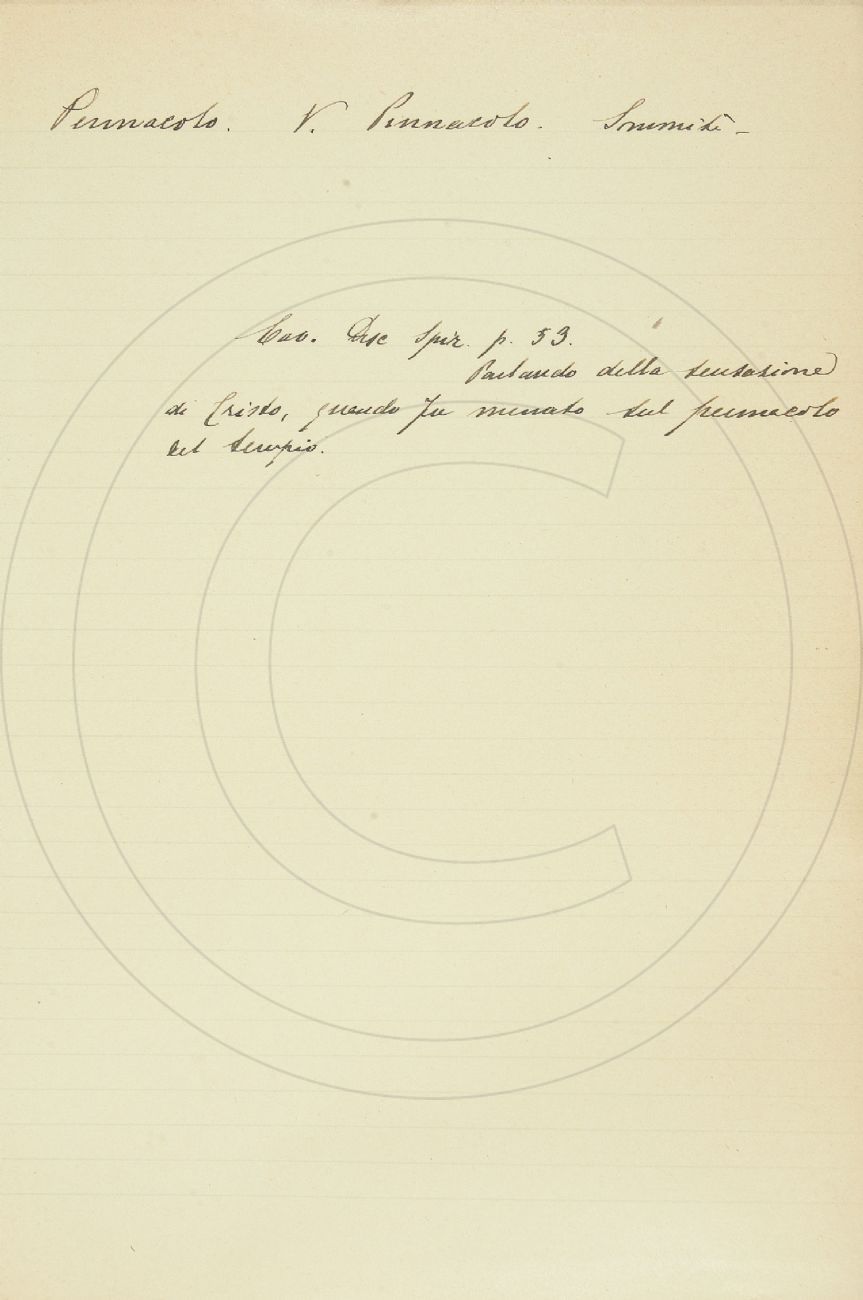 Pennacolo. V. Pinnacolo. Sommità -
Cav. Disc Spir. p. 53.
Parlando della tentazione
di Cristo, quando fu menato sul pennacolo
del tempio.